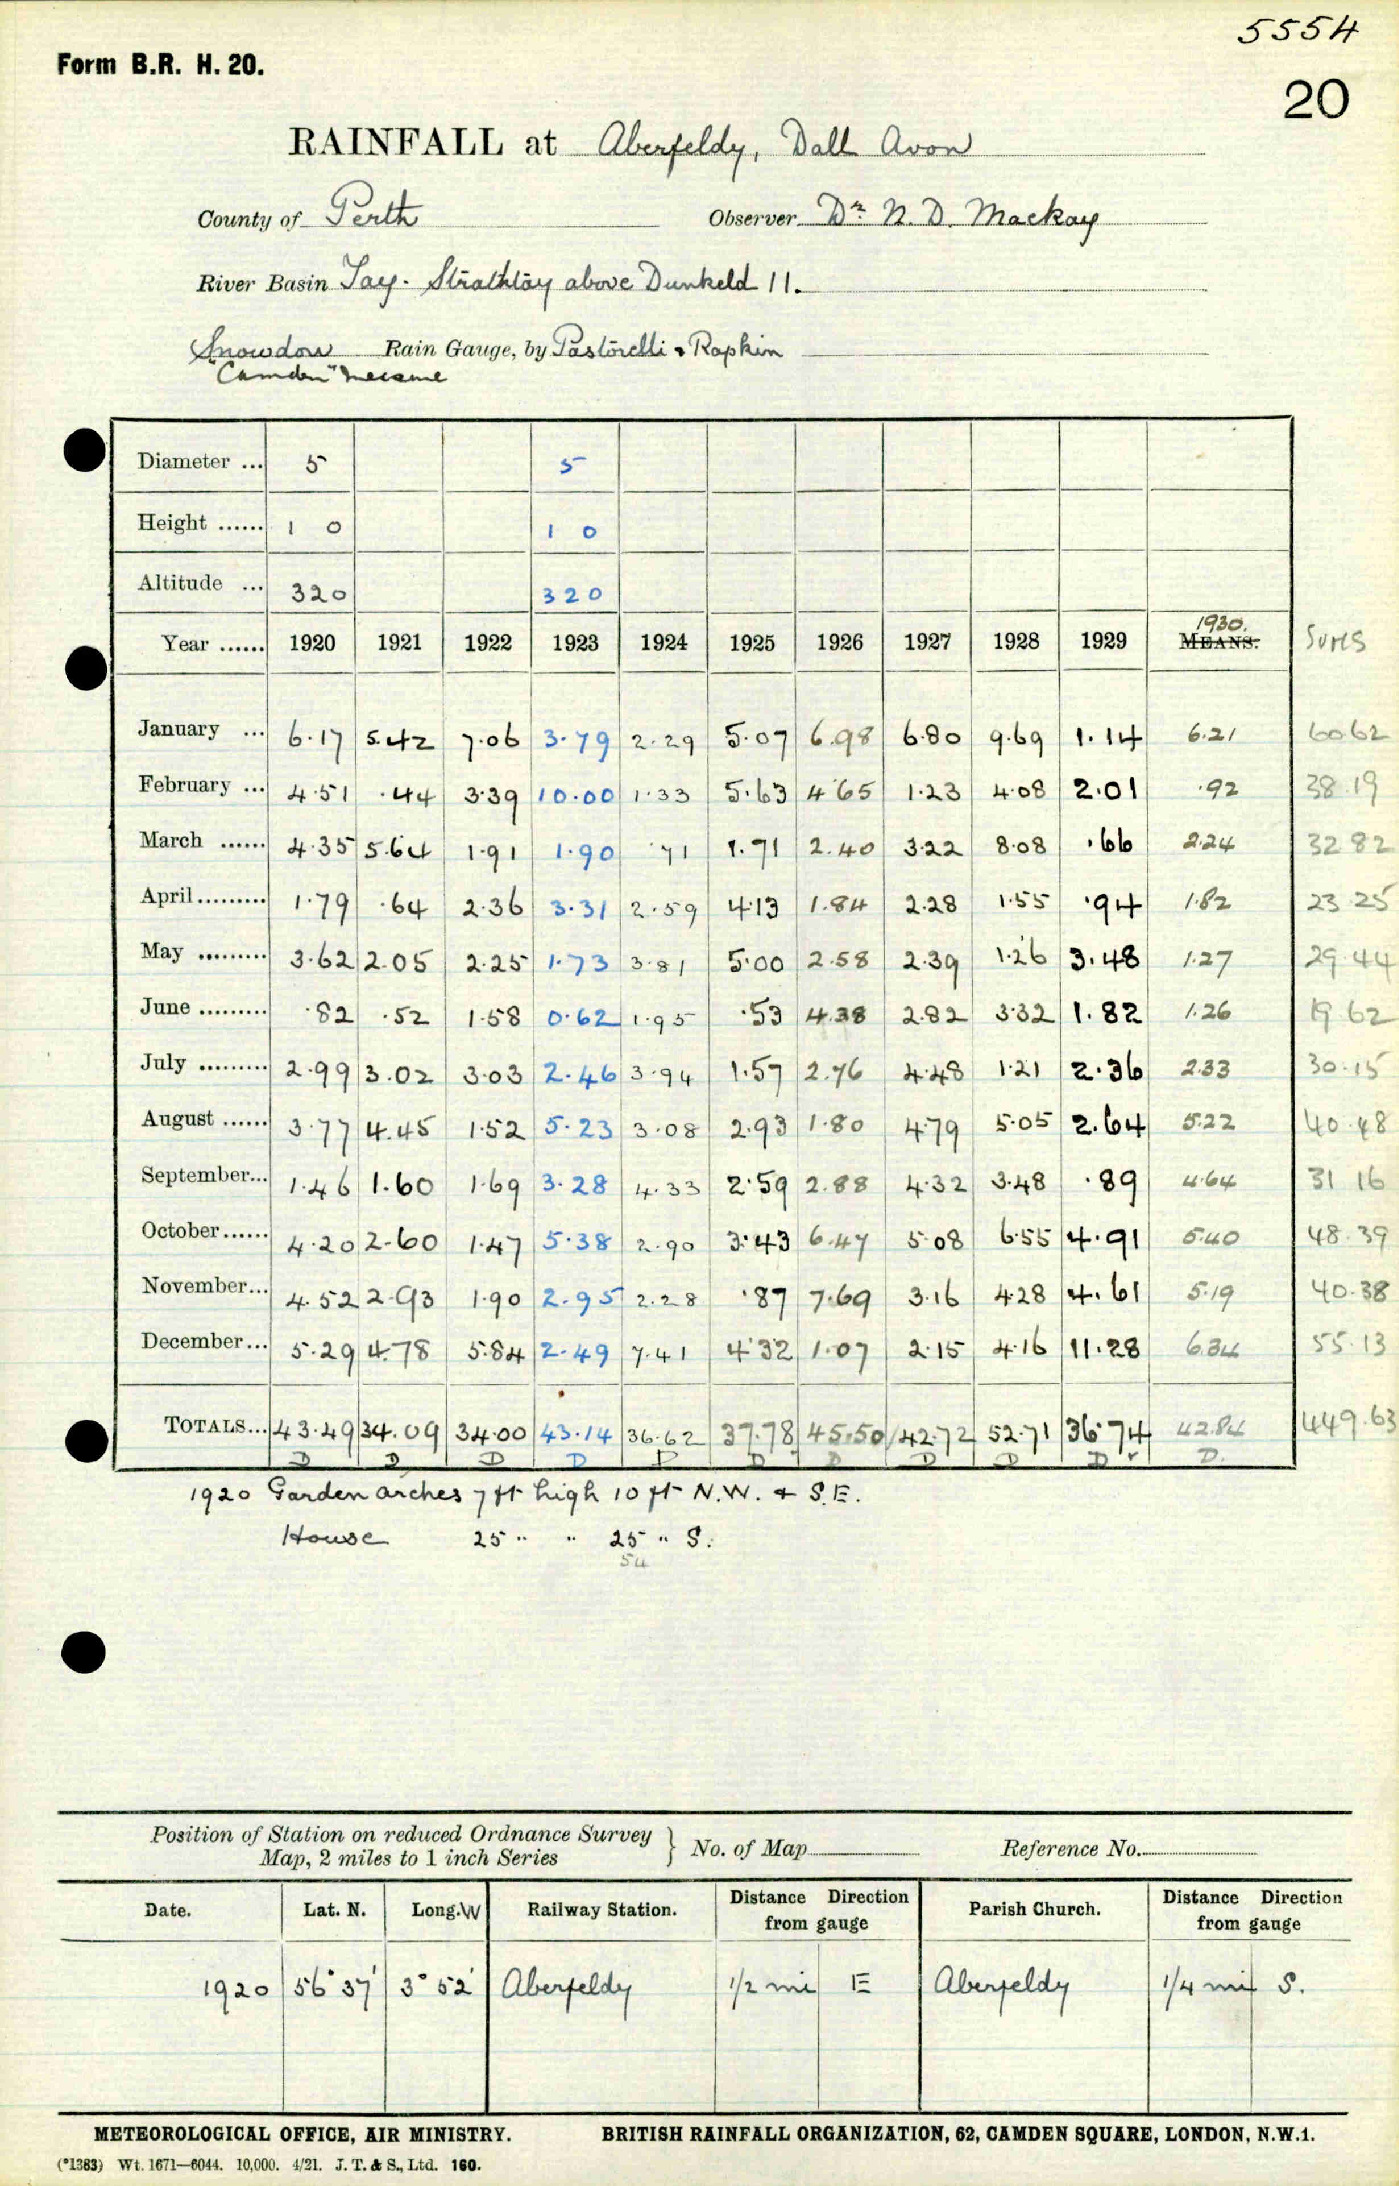 5554
Form B.R. H. 20.
20
RAINFALL at Aberfeldy, Dall Avon
County of Perth Observer Dr N. D. Mackay
River Basin Tay. Strathtay above Dunkeld 11.
Snowdon Rain Gauge, by Pastorelli & Rapkin
"Camden" measure
Diameter ... 5 5
Height ...... 1 0 1 0
Altitude ... 320 320
1930.
Year ...... 1920 1921 1922 1923 1924 1925 1926 1927 1928 1929 MEANS. Sums
January ... 6.17 5.42 7.06 3.79 2.29 5.07 6.98 6.80 9.69 1.14 6.21 60.62
February ... 4.51 .44 3.39 10.00 1.33 5.63 4.65 1.23 4.08 2.01 .92 38.19
March ...... 4.35 5.64 1.91 1.90 .71 1.71 2.40 3.22 8.08 .66 2.24 32.82
April ......... 1.79 .64 2.36 3.31 2.59 4.13 1.84 2.28 1.55 .94 1.82 23.25
May ......... 3.62 2.05 2.25 1.73 3.81 5.00 2.58 2.39 1.26 3.48 1.27 29.44
June ......... .82 .52 1.58 0.62 1.95 .53 4.38 2.82 3.32 1.82 1.26 19.62
July ......... 2.99 3.02 3.03 2.46 3.94 1.57 2.76 4.48 1.21 2.36 2.33 30.15
August ...... 3.77 4.45 1.52 5.23 3.08 2.93 1.80 4.79 5.05 2.64 5.22 40.48
September... 1.46 1.60 1.69 3.28 4.33 2.59 2.88 4.32 3.48 .89 4.64 31.16
October...... 4.20 2.60 1.47 5.38 2.90 3.43 6.47 5.08 6.55 4.91 5.40 48.39
November... 4.52 2.93 1.90 2.95 2.28 .87 7.69 3.16 4.28 4.61 5.19 40.38
December... 5.29 4.78 5.84 2.49 7.41 4.32 1.07 2.15 4.16 11.28 6.34 55.13
TOTALS... 43.49 34.09 34.00 43.14 36.62 37.78 45.50 42.72 52.71 36.74 42.84 449.63
D D D D D D D D D D D.
1920 Garden arches 7 ft high 10 ft N.W. + S.E.
House 25 " " 25 " S.
54
Position of Station on reduced Ordnance Survey
Map, 2 miles to 1 inch Series } No. of Map Reference No.
Date. Lat. N. Long. W Railway Station. Distance Direction from gauge Parish Church. Distance Direction from gauge
1920 56° 37' 3° 52' Aberfeldy 1/2 mi E Aberfeldy 1/4 mi S.
METEOROLOGICAL OFFICE, AIR MINISTRY. BRITISH RAINFALL ORGANIZATION, 62, CAMDEN SQUARE, LONDON, N.W.1.
(*1383) Wt. 1671—6044. 10,000. 4/21. J. T. & S., Ltd. 160.